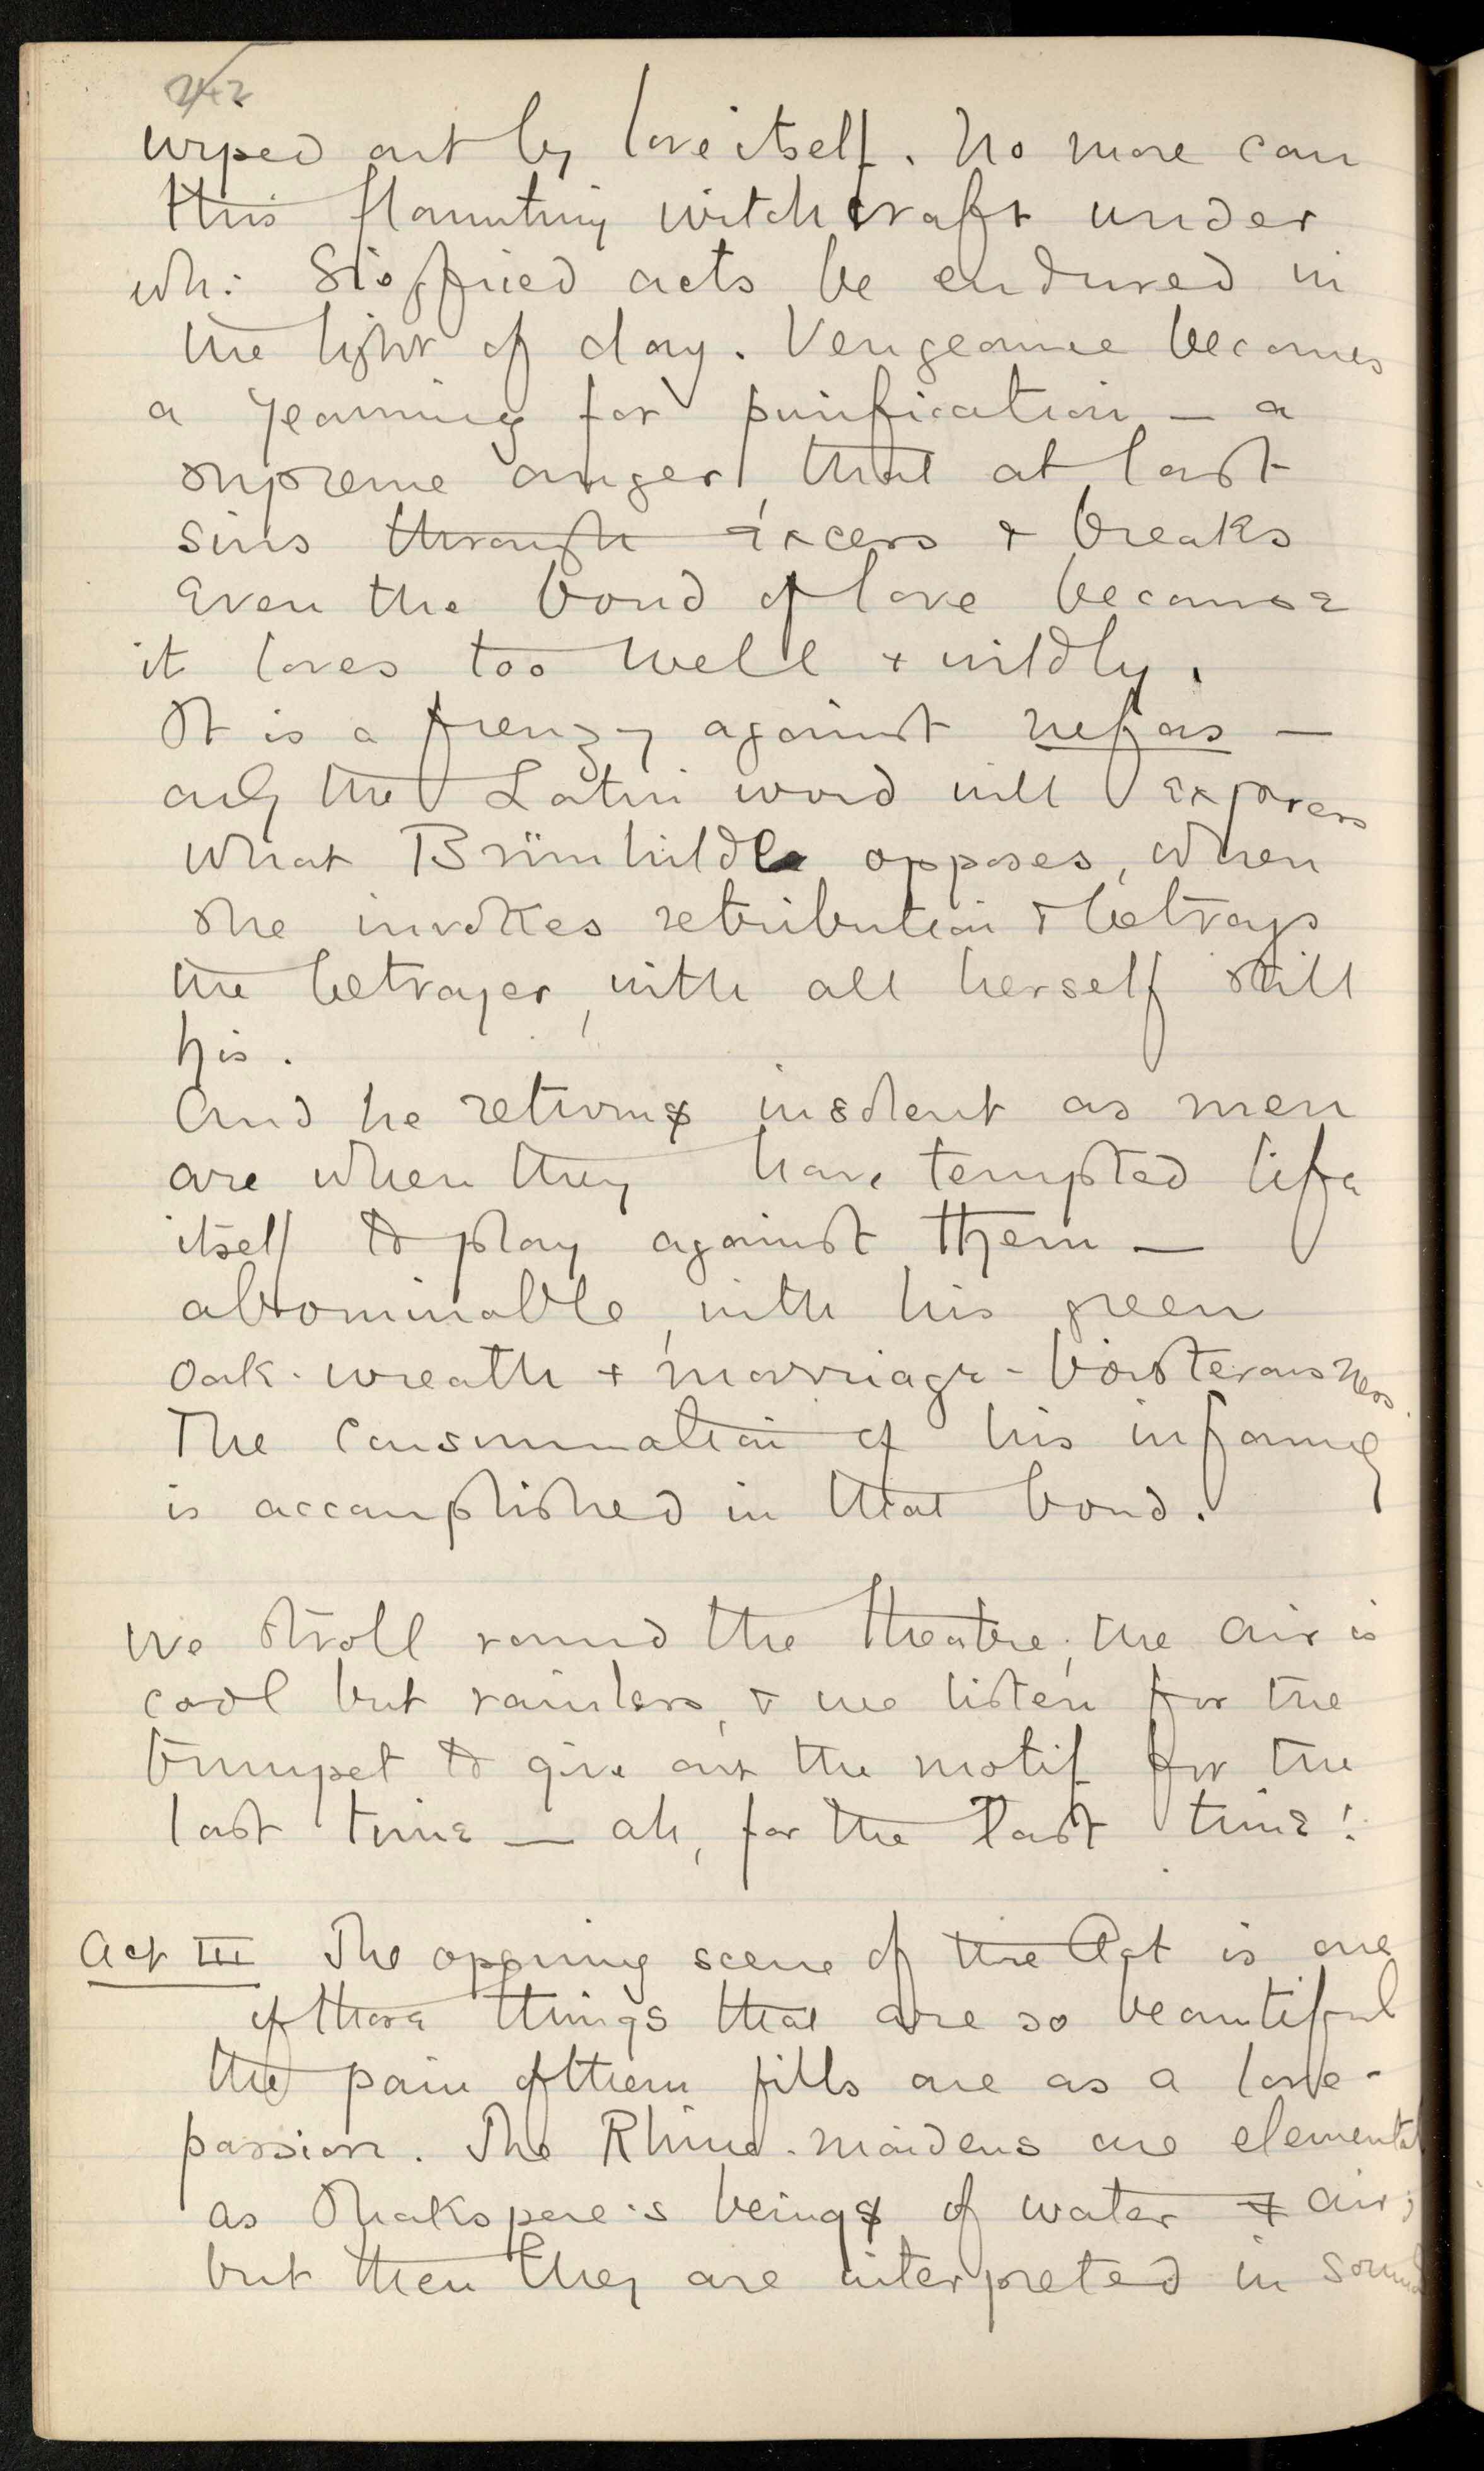 242
wiped out by love itself. No more can
this flaunting witchcraft under
wh: Siegfried acts be endured in
the light of day. Vengeance becomes
a yearning for purification – a
supreme anger, that at last
sins through excess & breaks
even the bond of love because
it loves too well & wildly.
It is a frenzy against nefas –
only the Latin word will express
what Brünhilde opposes, when
she invokes retribution & betrays
the betrayer, with all herself still
his.
And he returns insolent as men
are when they have tempted life
itself to play against them –
abominable, with his green
oak-wreath & marriage-boisterousness.
The consummation of his infamy
is accomplished in that bond.
We stroll round the theatre; the air is
cool but rainless, & we listen for the
trumpet to give out the motif for the
last time – ah, for the last time!
Act III The opening scene of the Act is one
of those things that are so beautiful
the pain of them fills one as a love-
passion. The Rhine-maidens are elemental
as Shakspere's beings of water & air;
but then they are interpreted in sound